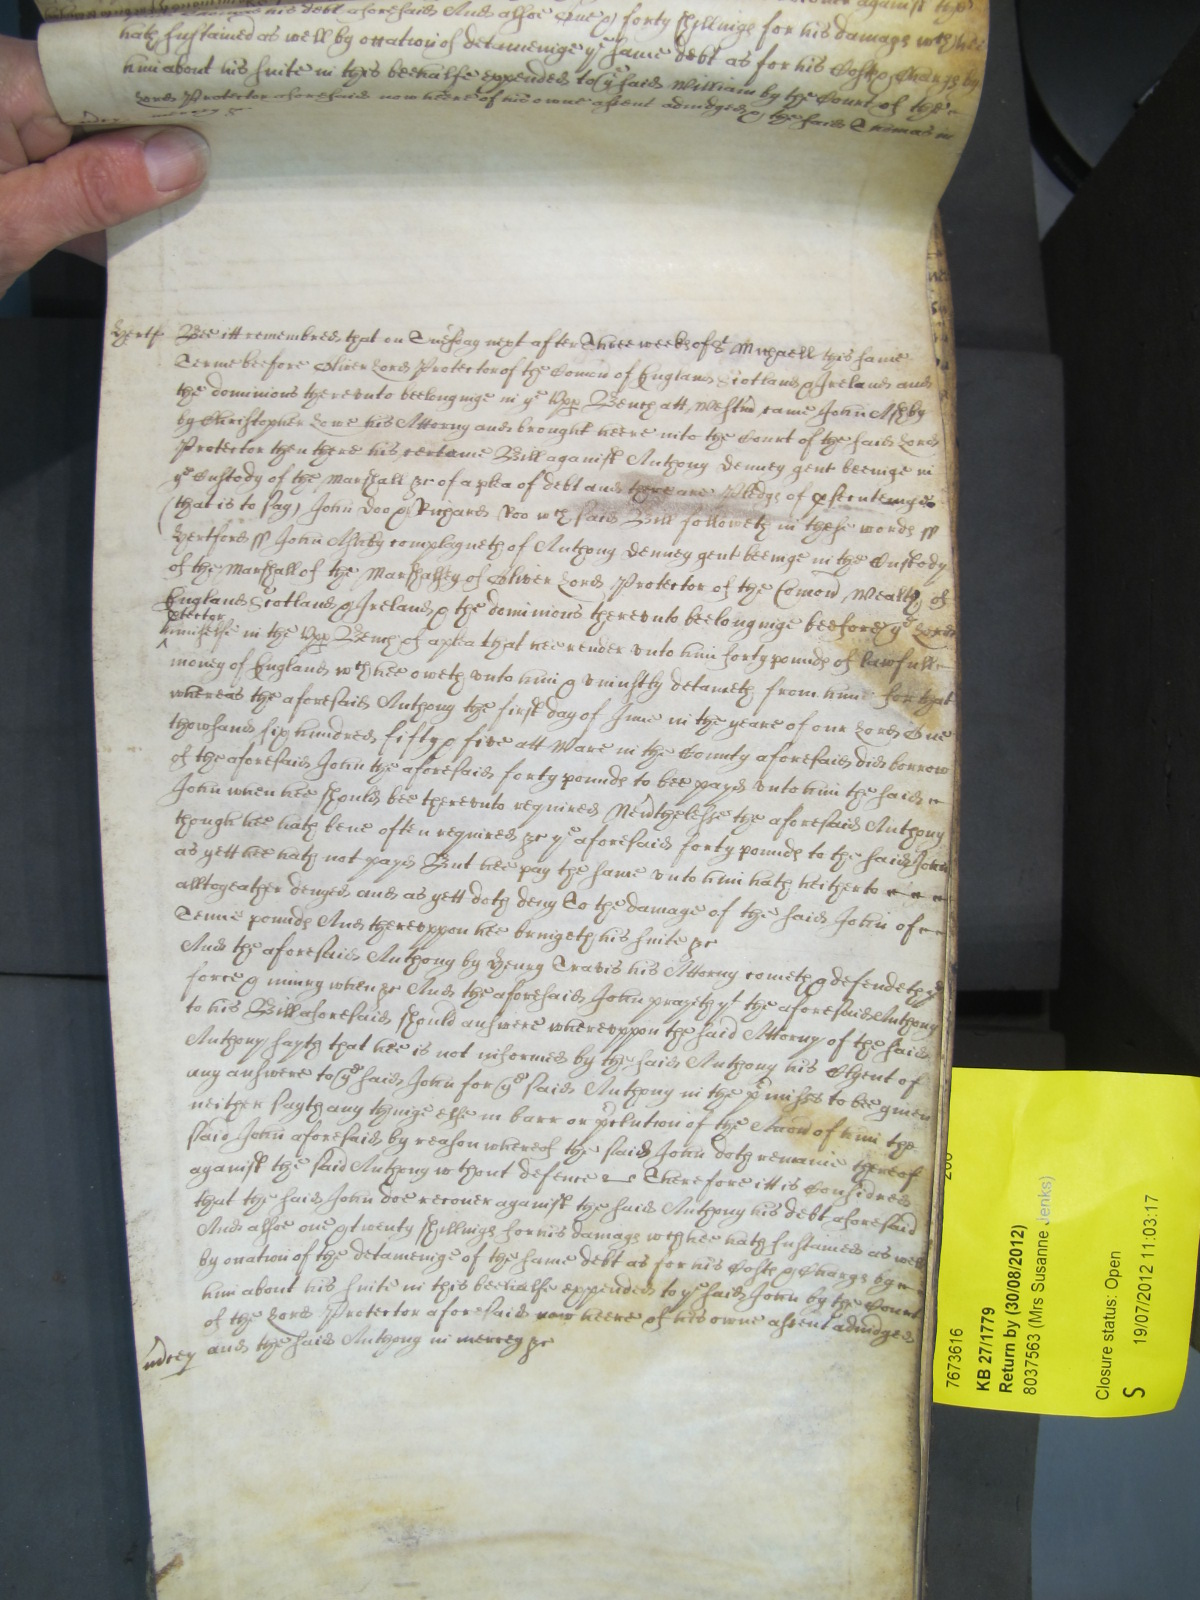 his debt aforesaid And alsoe One & forty shillings for his damags wch hee
hath sustained as well by occation of deteineinge ye same debt as for his Costs & Chargs by
him about his suite in this beehalfe expended to ye said William by the Court of the
Lord Protector aforesaid now heere of his owne assent adiudged & the said Thomas in
mercy &c
Hertf Bee itt remembred that on Tuesday next after Three weeks of St Michaell this same
Terme beefore Oliver Lord Protector of the Comon of England Scotland & Ireland and
the dominions thereunto beelonginge in ye Vpp Bench att Westm came John Asheby
by Christopher Lowe his Attorny and brought heere into the Court of the said Lord
Protector then there his certaine Bill against Anthony Denney gent beeinge in
ye Custody of the Marshall &c of a plea of debt and there are Pledgs of psecuteinge
(that is to say) John Doo & Richard Roo wch said Bill followeth in these words ss
Hertford ss John Asheby complayneth of Anthony Denney gent beeinge in the Custody
of the Marshall of the Marshallsey of Oliver Lord Protector of the Comon Wealth of
England Scotland & Ireland & the dominions thereunto beelonginge beefore ye Lord
ptector
himselfe in the Vpp Bench of a plea that hee render vnto him forty pounds of lawfull
money of England wch hee oweth vnto him & vniustly deteineth from him for that
whereas the aforesaid Anthony the first day of June in the yeare of our Lord One
thowsand six hundred fifty & five att Ware in the County aforesaid did borrow
of the aforesaid John the aforesaid forty pounds to bee payd vnto him the said
John when hee should bee thereunto required Nevthelesse the aforesaid Anthony
though hee hath bene often required &c ye aforesaid forty pounds to the said John
as yett hee hath not payd But hee pay the same vnto him hath heitherto
alltogeather denyed and as yett doth deny To the damage of the said John of
Tenne pounds And thereuppon hee bringeth his suite &c
And the aforesaid Anthony by Henry Travis his Attorny cometh & defendeth ye
force & iniury when &c And the aforesaid John prayeth yt the aforesaid Anthony
to his Bill aforesaid should answere whereuppon the said Attorny of the said
Anthony sayth that hee is not informed by the said Anthony his Clyent of
any answere to ye said John for ye said Anthony in the pmisses to bee given
neither sayth any thinge else in barr or pclution of the Accon of him the
said John aforesaid by reason whereof the said John doth remaine thereof
against the said Anthony wthout defence Therefore itt is Considred
that the said John doe recover against the said Anthony his debt aforesaid
And alsoe one & twenty shillings for his damags wch hee hath sustained as well
by occation of the deteineinge of the same debt as for his Costs & Chargs by
him about his suite in this beehalfe expended to ye said John by the Court
of the Lord Protector aforesaid now heere of his owne assent adiudged
mercy and the said Anthony in mercy &c
7673616
KB 27/1779
Return by (30/08/2012)
8037563 (Mrs Susanne Jenks)
Closure status: Open
S 19/07/2012 11:03:17